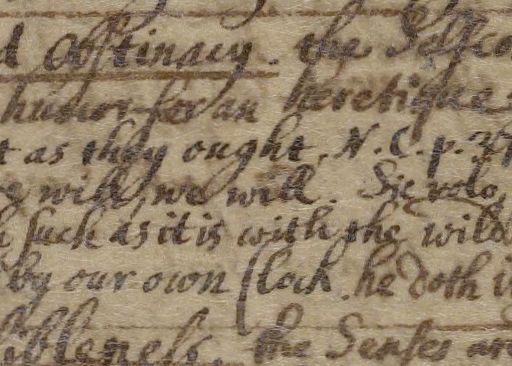 d Obstinacy. the Selfco
humor for an heretique
t as they ought. N. C. p. 37
we will, we will. Sic volo,
h such as it is with the wild
by our own Clock. he doth
ibleness. the Senses an